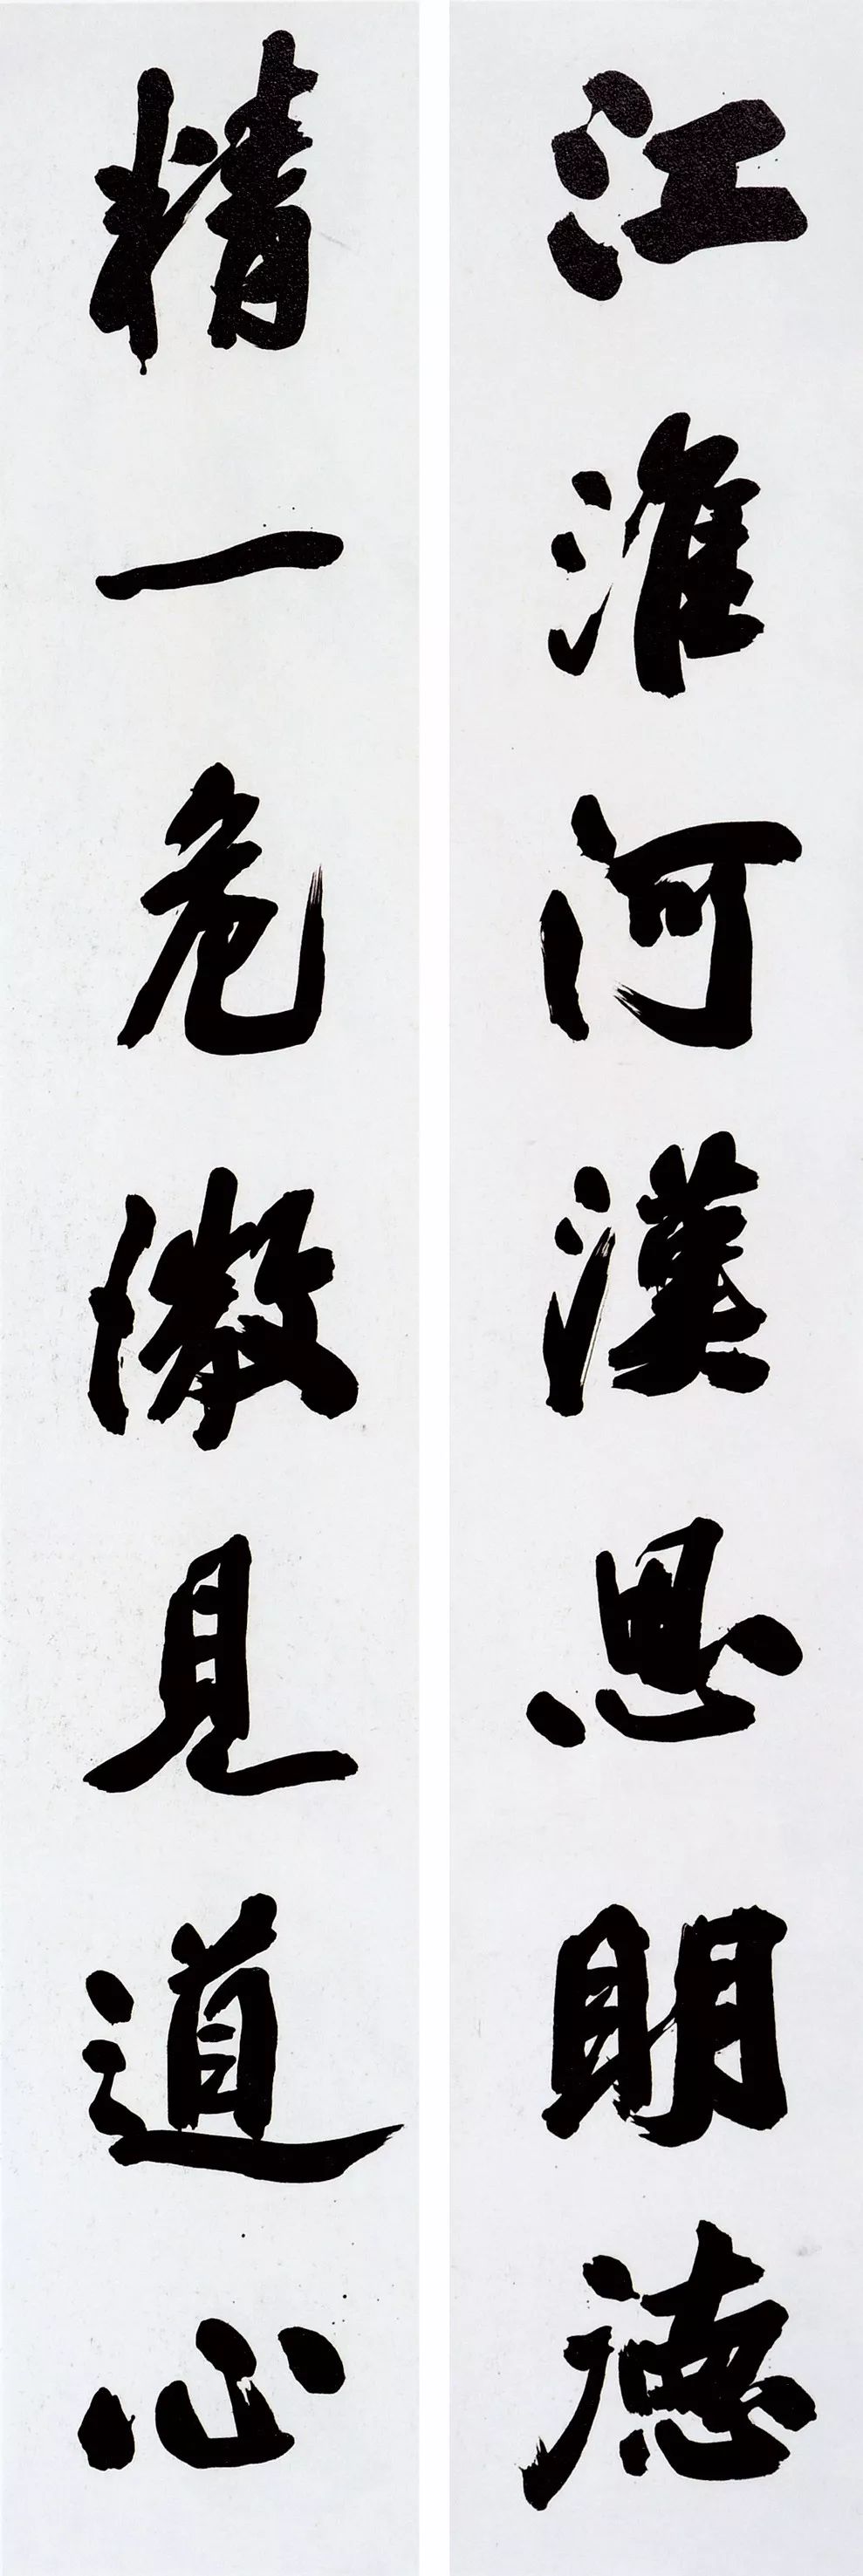 江淮河漢思明德
精一危微見道心